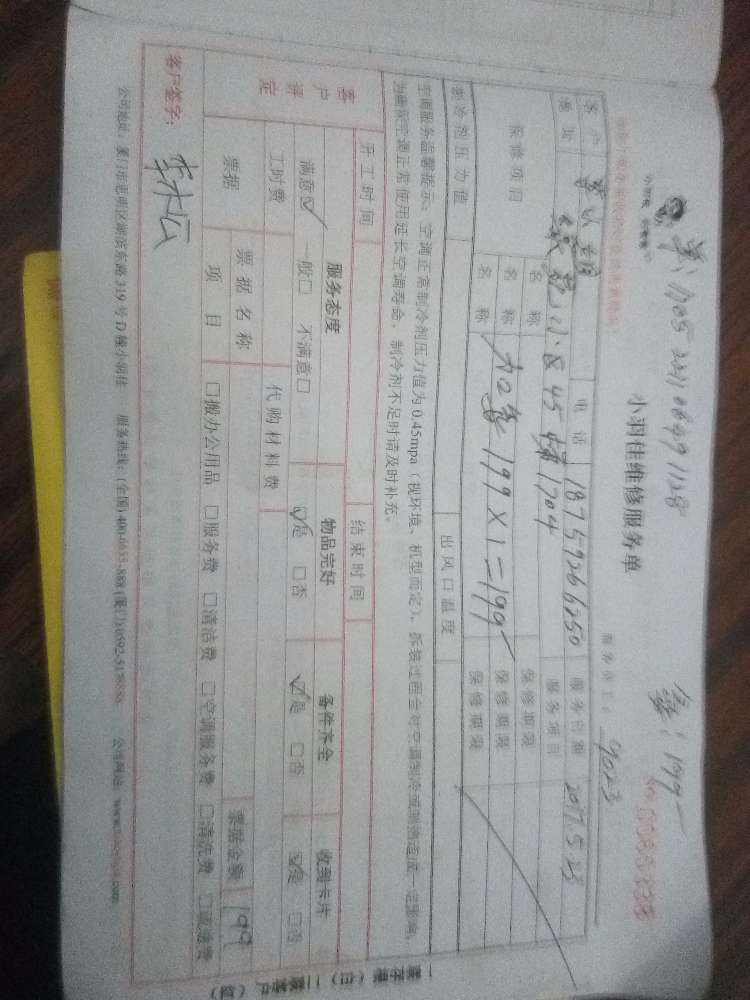 单：1705221106491128
金：199
小羽佳维修服务单
服务员工号 9023
客户
电话 18759266250
服务日期 2017.5.23
地址
45幢1704
服务项目
保修项目
名称
保修期限
名称
加雪 199×1=199
保修期限
名称
保修期限
制冷剂压力值
出风口温度
空调服务温馨提示：空调正常制冷剂压力值为0.45mpa（视环境、机型而定），拆装过程会对空调制冷或制热造成一定影响，
为确保空调正常使用延长空调寿命，制冷剂不足时请及时补充。
开工时间
结束时间
客户评定
服务态度
物品完好
备件齐全
收到卡片
满意☑ 一般□ 不满意□
☑是 □否
☑是 □否
☑是 □否
工时费
代购材料费
票据
票据名称
票据金额 199
项目
□搬办公用品 □服务费 □清洁费 □空调服务费 □清洗费 □疏通费
客户签字：
公司地址：厦门市思明区湖滨东路319号D幢小羽佳 服务热线：(全国)400-6655-888 (厦门)0592-5178888 公司网址：www.